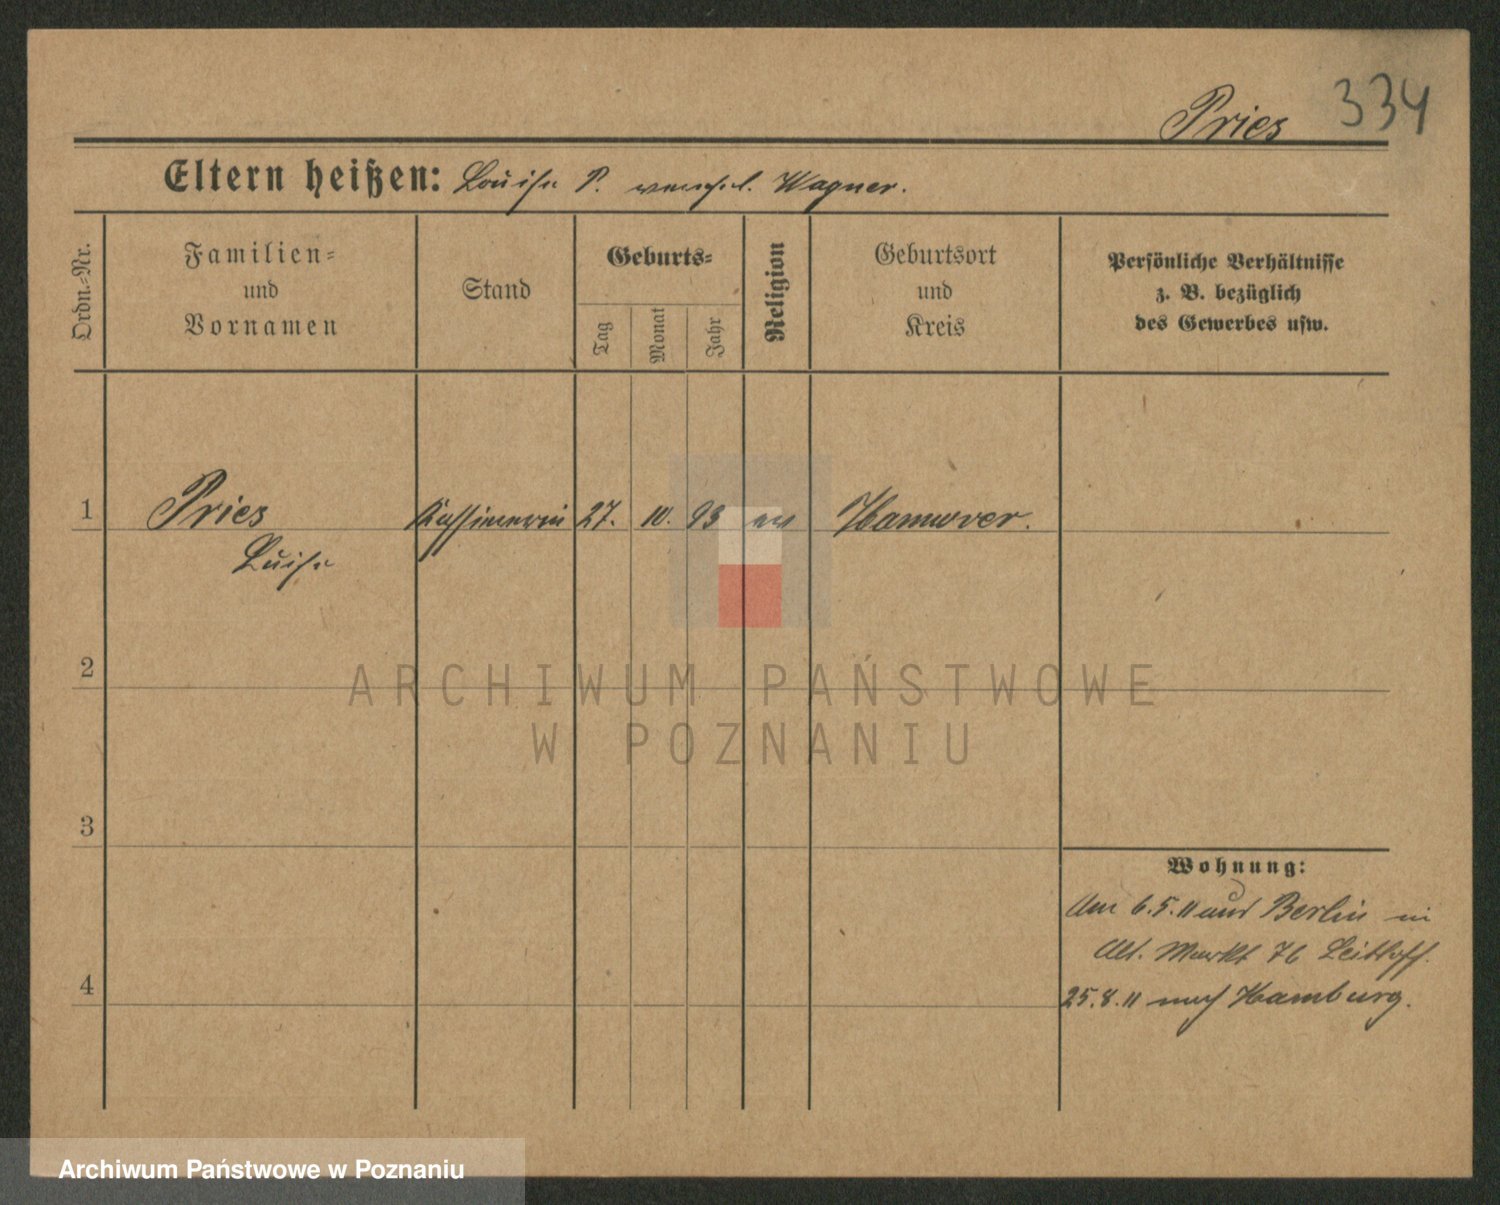 334
Pries
Eltern heißen: Louise P. verehel. Wagner.
Ordn.-Nr.
Familien-
und
Vornamen
Stand
Geburts-
Tag
Monat
Jahr
Religion
Geburtsort
und
Kreis
Persönliche Verhältnisse
z. B. bezüglich
des Gewerbes usw.
1 Pries Kassiererin 27. 10. 93 ev Hannover.
Luise
2
ARCHIWUM PAŃSTWOWE
W POZNANIU
3
Wohnung:
Am 6.5.11 aus Berlin in
Alt. Markt 76
4
25.8.11 nach Hamburg.
Archiwum Państwowe w Poznaniu